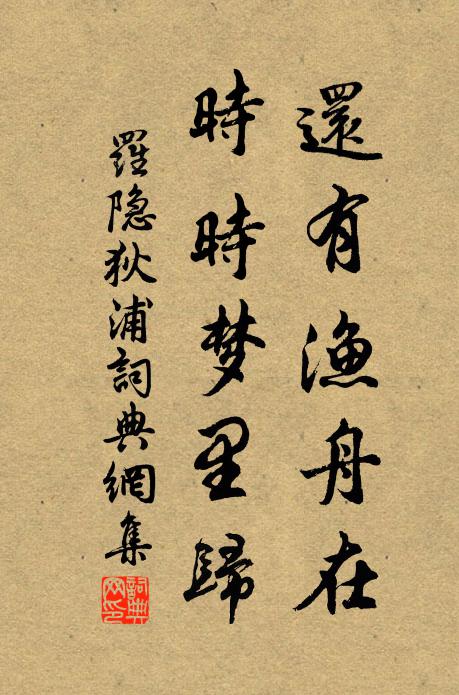 還有漁舟在
時時梦里歸
羅隐狄浦詞典網集
詞典网印